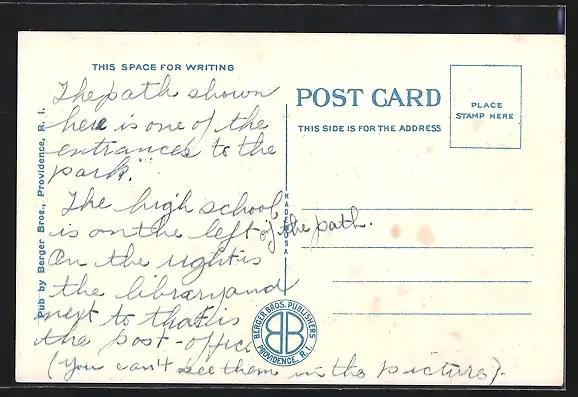 THIS SPACE FOR WRITING
The path shown
here is one of the
entrances to the
park.
The high school
is on the left of the path.
On the right is
the library and
next to that is
the post-office
(You can't see them in the picture).
Pub by Berger Bros., Providence, R. I.
MADE IN USA
POST CARD
THIS SIDE IS FOR THE ADDRESS
PLACE
STAMP HERE
BERGER BROS. PUBLISHERS
BB
PROVIDENCE, R. I.